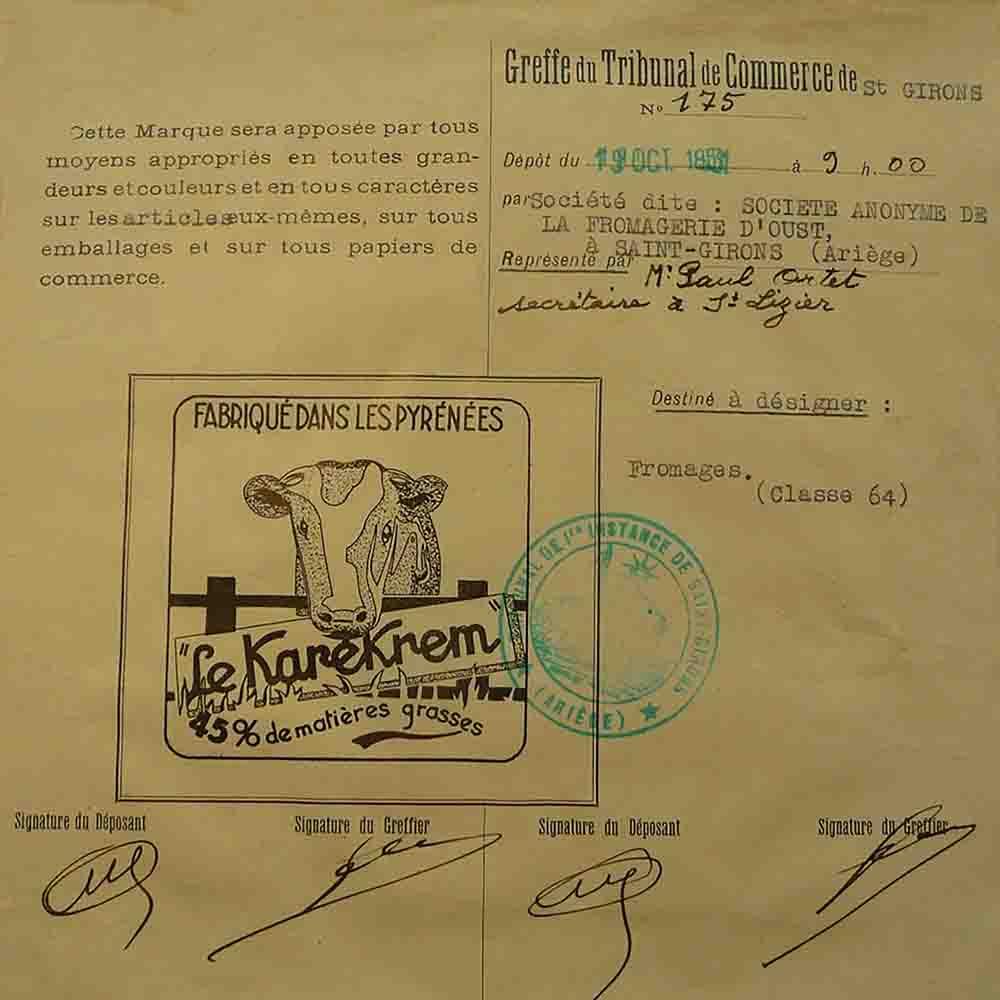 Cette Marque sera apposée par tous
moyens appropriés en toutes gran-
deurs et couleurs et en tous caractères
sur les articles eux-mêmes, sur tous
emballages et sur tous papiers de
commerce.
Greffe du Tribunal de Commerce de St GIRONS
N° 175
Dépôt du OCT à 9 h. 00
par Société dite : SOCIETE ANONYME DE
LA FROMAGERIE D'OUST,
à SAINT-GIRONS (Ariège)
Représenté par Mr Paul Ortet
secrétaire à St Lizier
Destiné à désigner :
Fromages.
(Classe 64)
FABRIQUÉ DANS LES PYRÉNÉES
"Le KaréKrem"
45% de matières grasses
TRIBUNAL DE 1re INSTANCE DE SAINT-GIRONS
(ARIÈGE)
Signature du Déposant
Signature du Greffier
Signature du Déposant
Signature du Greffier